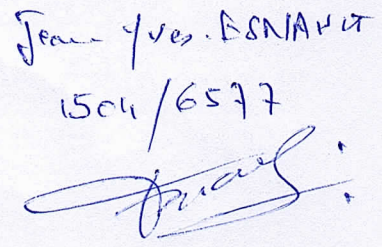 Jean Yves. ESNAULT
1504/6577